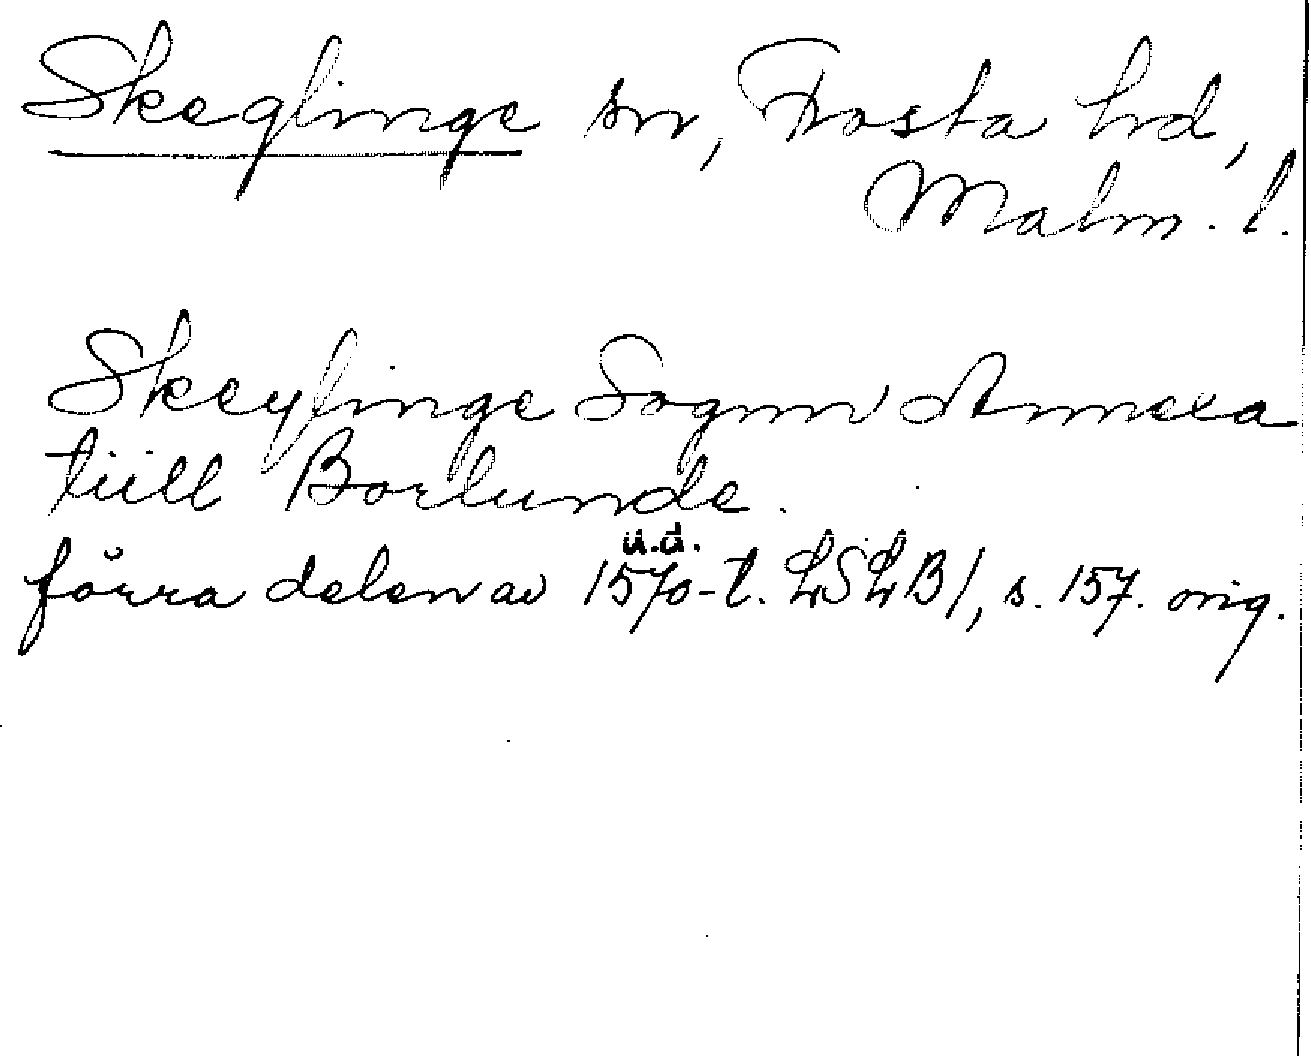 Skeglinge sn, Frosta hd,
Malm. l.
Skeylinge Sognn Annexa
tiill Borlunde.
u.d.
förra delen av 1570-t. LSLB1, s. 157. orig.